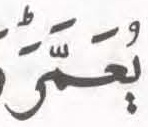 يُعَمَّرَؕ